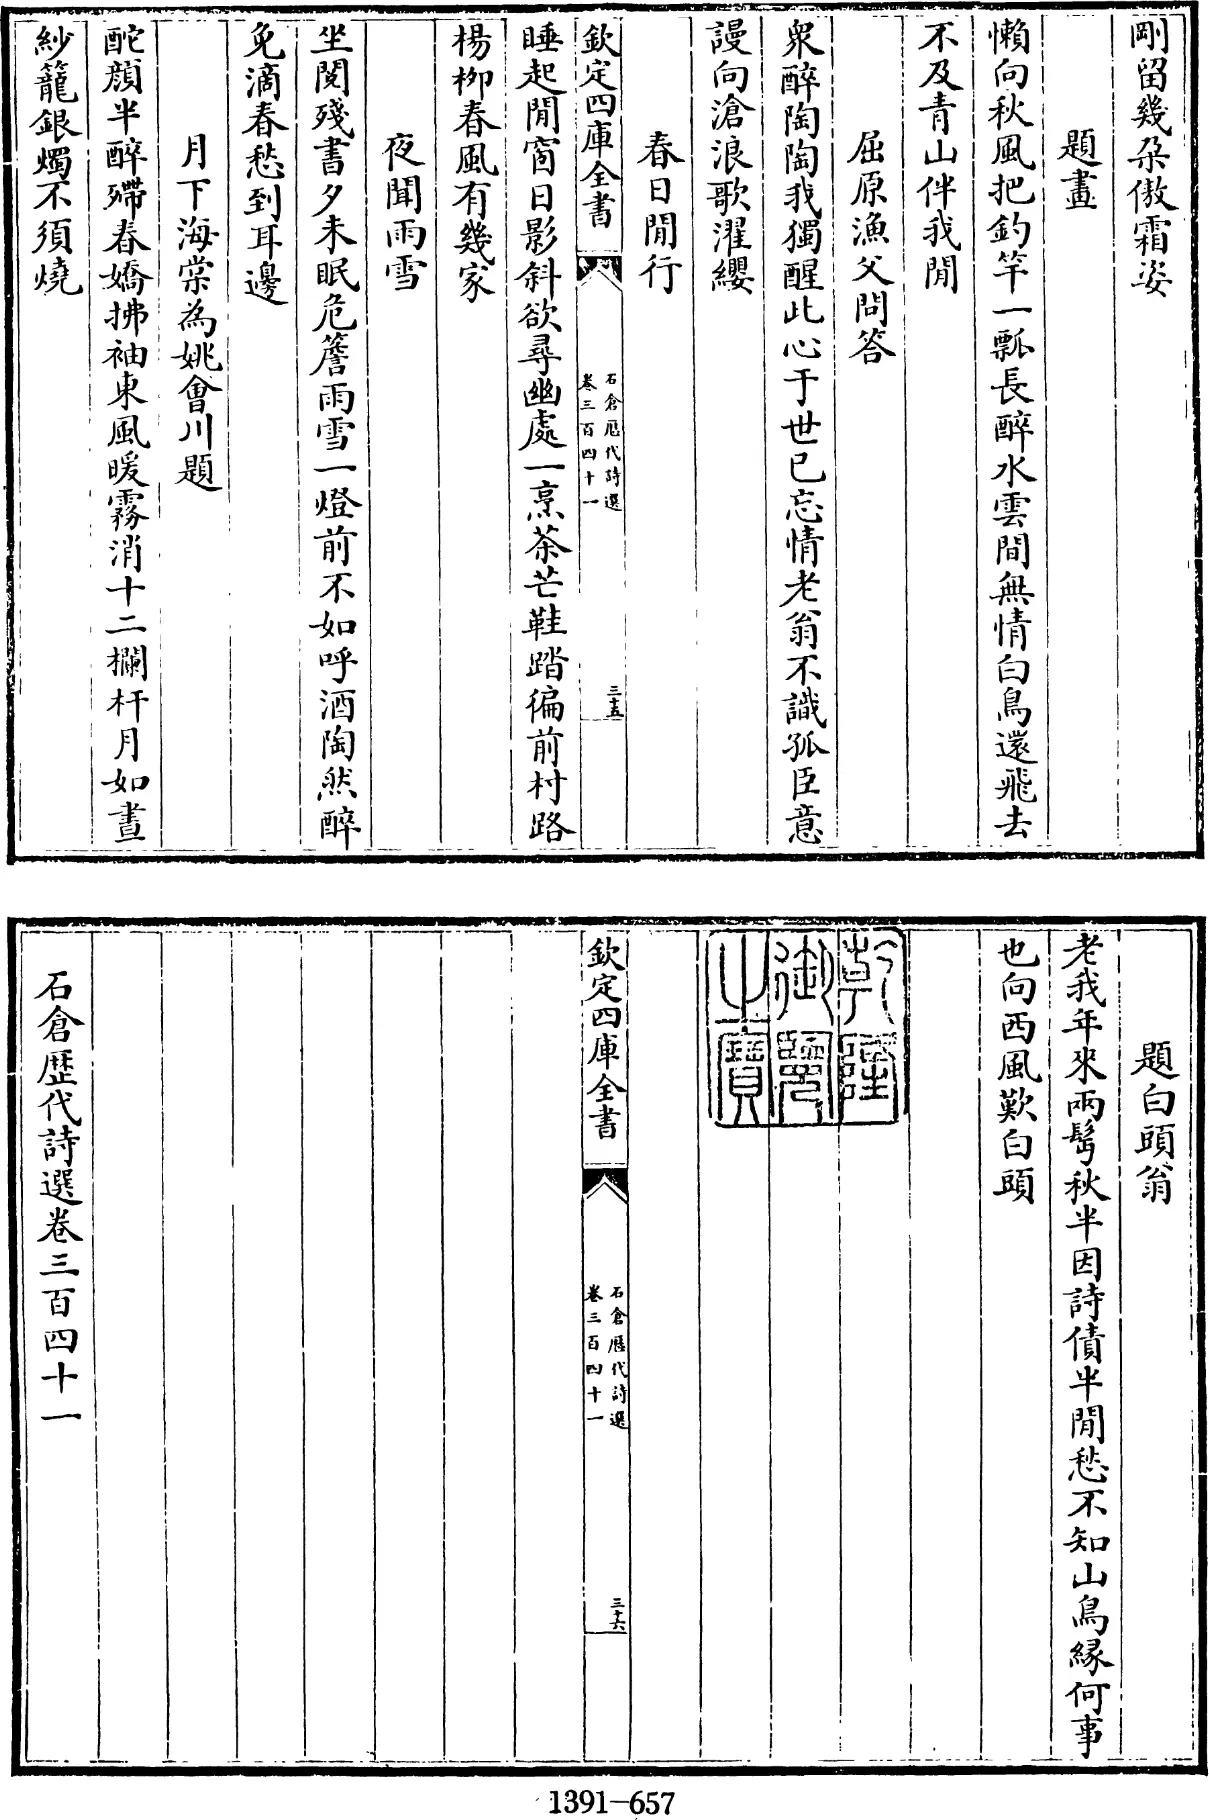 剛留幾朶傲霜姿
題畫
懶向秋風把釣竿一瓢長醉水雲間無情白鳥還飛去
不及青山伴我閒
屈原漁父問答
衆醉陶陶我獨醒此心于世已忘情老翁不識孤臣意
謾向滄浪歌濯纓
春日閒行
欽定四庫全書
石倉歷代詩選
卷三百四十一
三十五
睡起閒窗日影斜欲尋幽處一烹茶芒鞋踏徧前村路
楊柳春風有幾家
夜聞雨雪
坐閱殘書夕未眠危簷雨雪一燈前不如呼酒陶然醉
免滴春愁到耳邊
月下海棠為姚會川題
酡顔半醉殢春嬌拂袖東風暖霧消十二欄杆月如晝
紗籠銀燭不須燒
題白頭翁
老我年來兩鬂秋半因詩債半閒愁不知山鳥緣何事
也向西風歎白頭
乾隆
御覽
之寶
欽定四庫全書
石倉歷代詩選
卷三百四十一
三十六
石倉歷代詩選卷三百四十一
1391-657